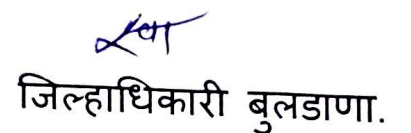 जिल्हाधिकारी बुलडाणा.